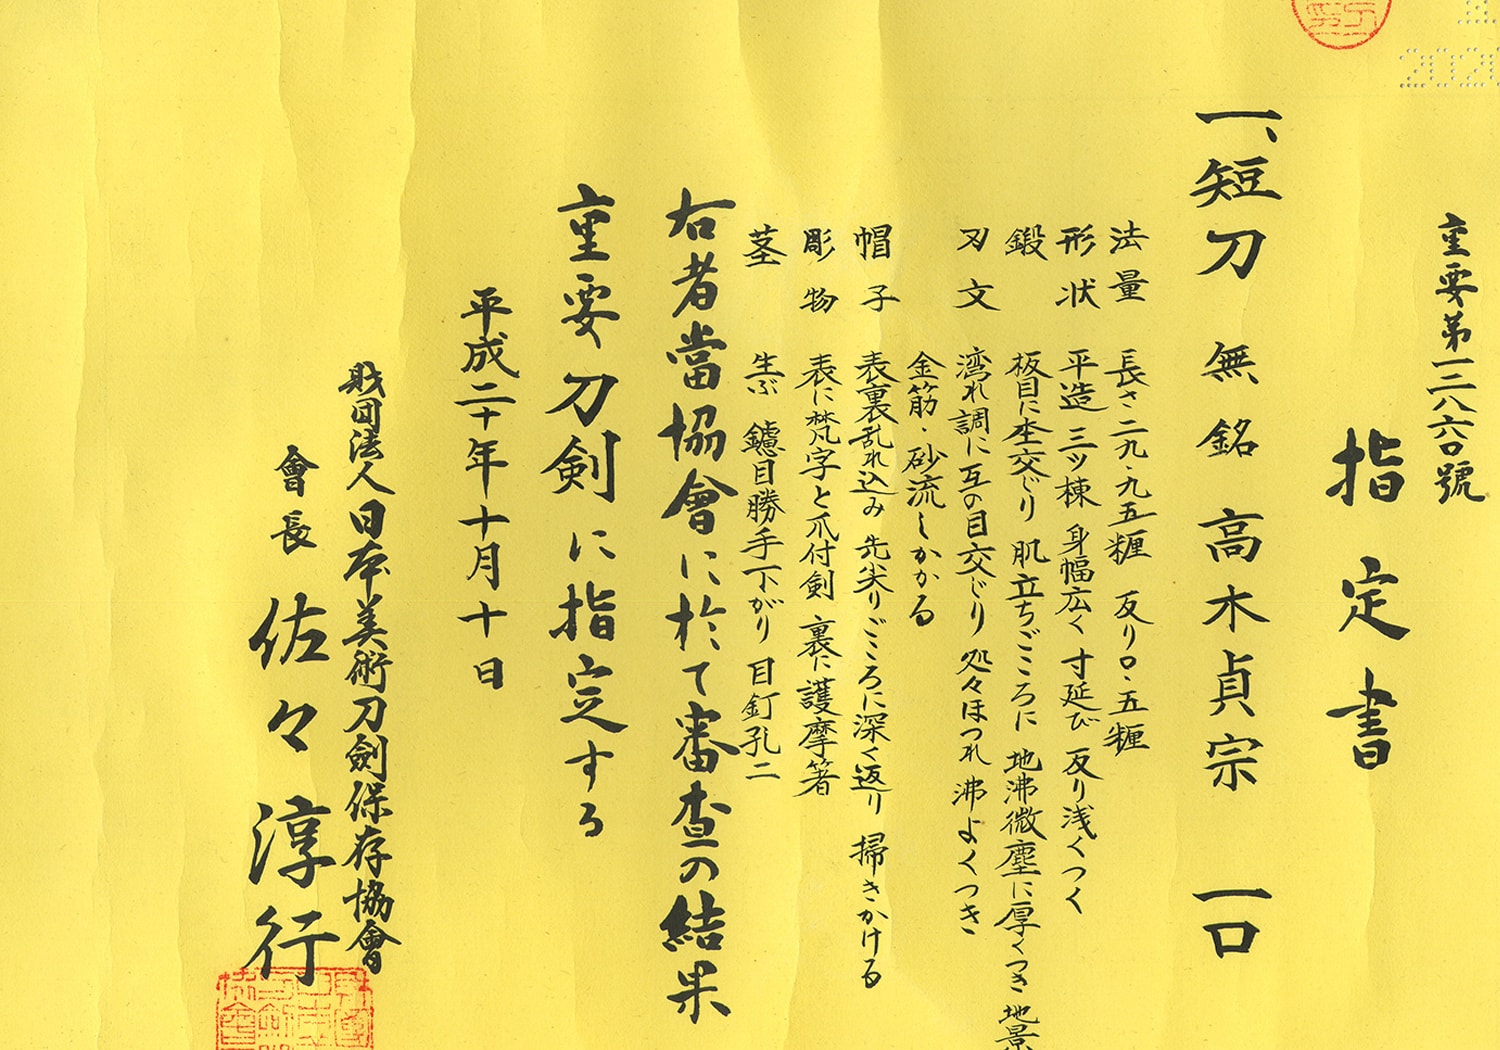 2020
重要第一三八六〇號
指定書
一、短刀 無銘 高木貞宗 一口
法量 長さ二九・九五糎 反り〇・五糎
形状 平造 三ツ棟 身幅広く 寸延び 反り浅くつく
鍛 板目に杢交じり 肌立ちごころに 地沸微塵に厚くつき 地景
刃文 湾れ調に互の目交じり 処々ほつれ 沸よくつき
金筋・砂流しかかる
帽子 表裏乱れ込み 先尖りごころに深く返り 掃きかける
彫物 表に梵字と爪付剣 裏に護摩箸
茎 生ぶ 鑢目勝手下がり 目釘孔二
右者當協會に於て審査の結果
重要刀剣に指定する
平成二十年十月十日
財団法人日本美術刀劍保存協會
會長 佐々淳行